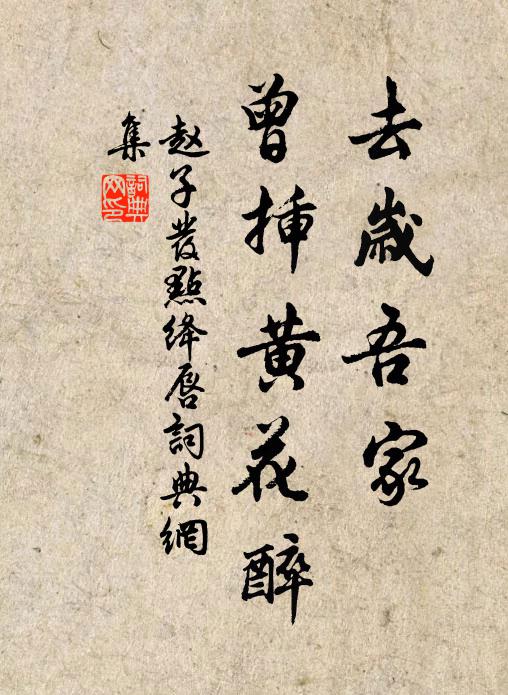 去歲吾家
曾插黃花醉
赵子發點絳唇詞典網
集
詞典
网印